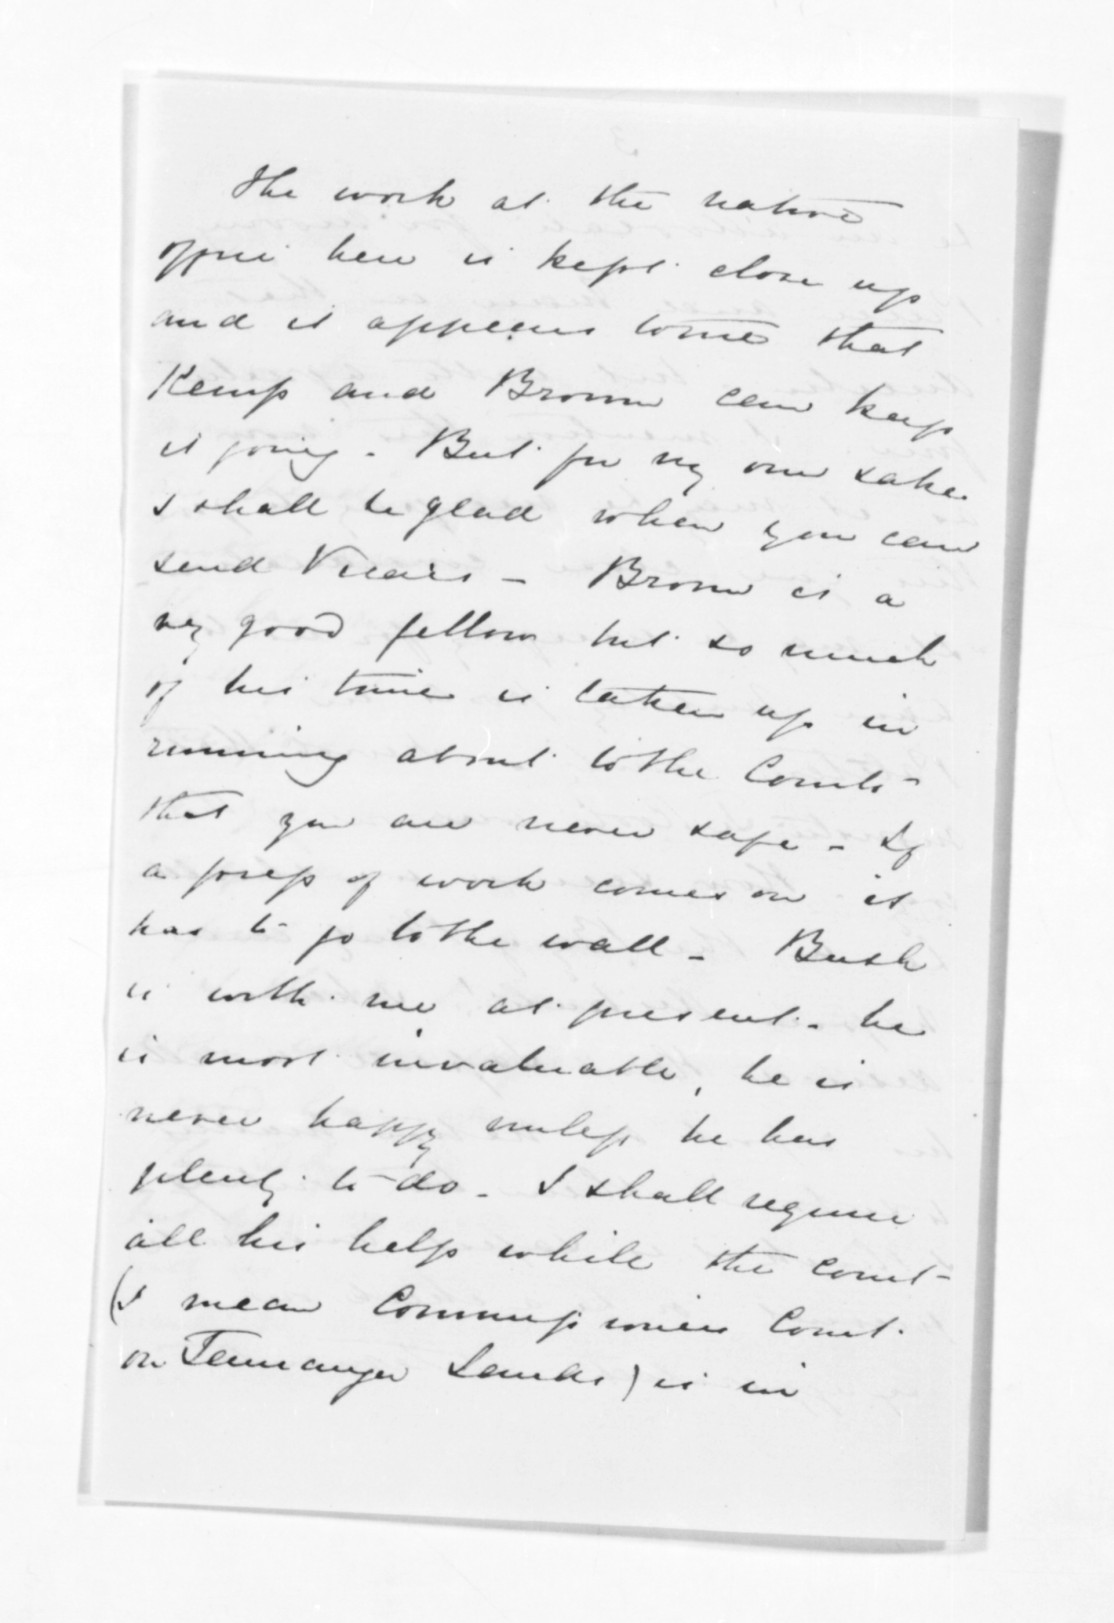 The work at the native
office here is kept close up
and it appears to me that
Kemp and Brown can keep
it going. But for my own sake
I shall be glad when you can
send Vicars - Brown is a
very good fellow but so much
of his time is taken up in
running about to the Courts -
that you are never safe - If
a press of work comes on it
has to go to the wall - Bush
is with me at present - he
is most invaluable, he is
never happy unless he has
plenty to do - I shall require
all his help while the Court -
(I mean Commissioners Court
on Tauranga Lands) is in